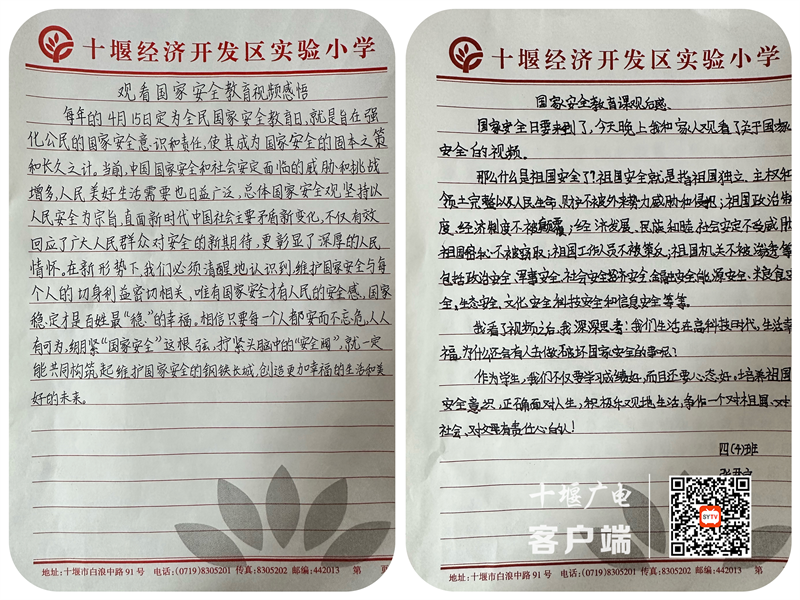 十堰经济开发区实验小学
观看国家安全教育视频感悟
每年的4月15日定为全民国家安全教育日,就是旨在强
化公民的国家安全意识和责任,使其成为国家安全的固本之策
和长久之计。当前,中国国家安全和社会安定面临的威胁和挑战
增多,人民美好生活需要也日益广泛,总体国家安全观坚持以
人民安全为宗旨,直面新时代中国社会主要矛盾新变化,不仅有效
回应了广大人民群众对安全的新期待,更彰显了深厚的人民
情怀。在新形势下,我们必须清醒地认识到,维护国家安全与每
个人的切身利益密切相关,唯有国家安全才有人民的安全感,国家
稳定才是百姓最“稳”的幸福。相信只要每一个人都安而不忘危,人人
有可为,绷紧“国家安全”这根弦,拧紧头脑中的“安全阀”,就一定
能共同构筑起维护国家安全的钢铁长城,创造更加幸福的生活和美
好的未来。
地址:十堰市白浪中路91号 电话:(0719)8305201 传真:8305202 邮编:442013 第 页
十堰经济开发区实验小学
国家安全教育课观后感
国家安全日要来到了,今天晚上我和家人观看了关于国家
安全的视频。
那么什么是祖国安全了?祖国安全就是指祖国独立、主权和
领土完整以及人民生命、财产不被外来势力威胁和侵犯;祖国政治制
度、经济制度不被颠覆;经济发展、民族和睦、社会安定不受威胁
祖国秘密不被窃取;祖国工作人员不被策反;祖国机关不被渗透等
包括政治安全、军事安全、社会安全经济安全、金融安全能源安全、粮食安
全、生态安全、文化安全科技安全和信息安全等等。
我看了视频之后,我深深思考!我们生活在高科技时代,生活幸
福,为什么还会有人去做破坏国家安全的事呢?
作为学生,我们不仅要学习成绩好,而且还要心态好,培养祖国
安全意识,正确面对人生,积极乐观地生活,争作一个对祖国、对
社会、对父母有责任心的人!
四(4)班
十堰广电
客户端
SYTV
地址:十堰市白浪中路91号 电话:(0719)8305201 传真:8305202 邮编:442013 第